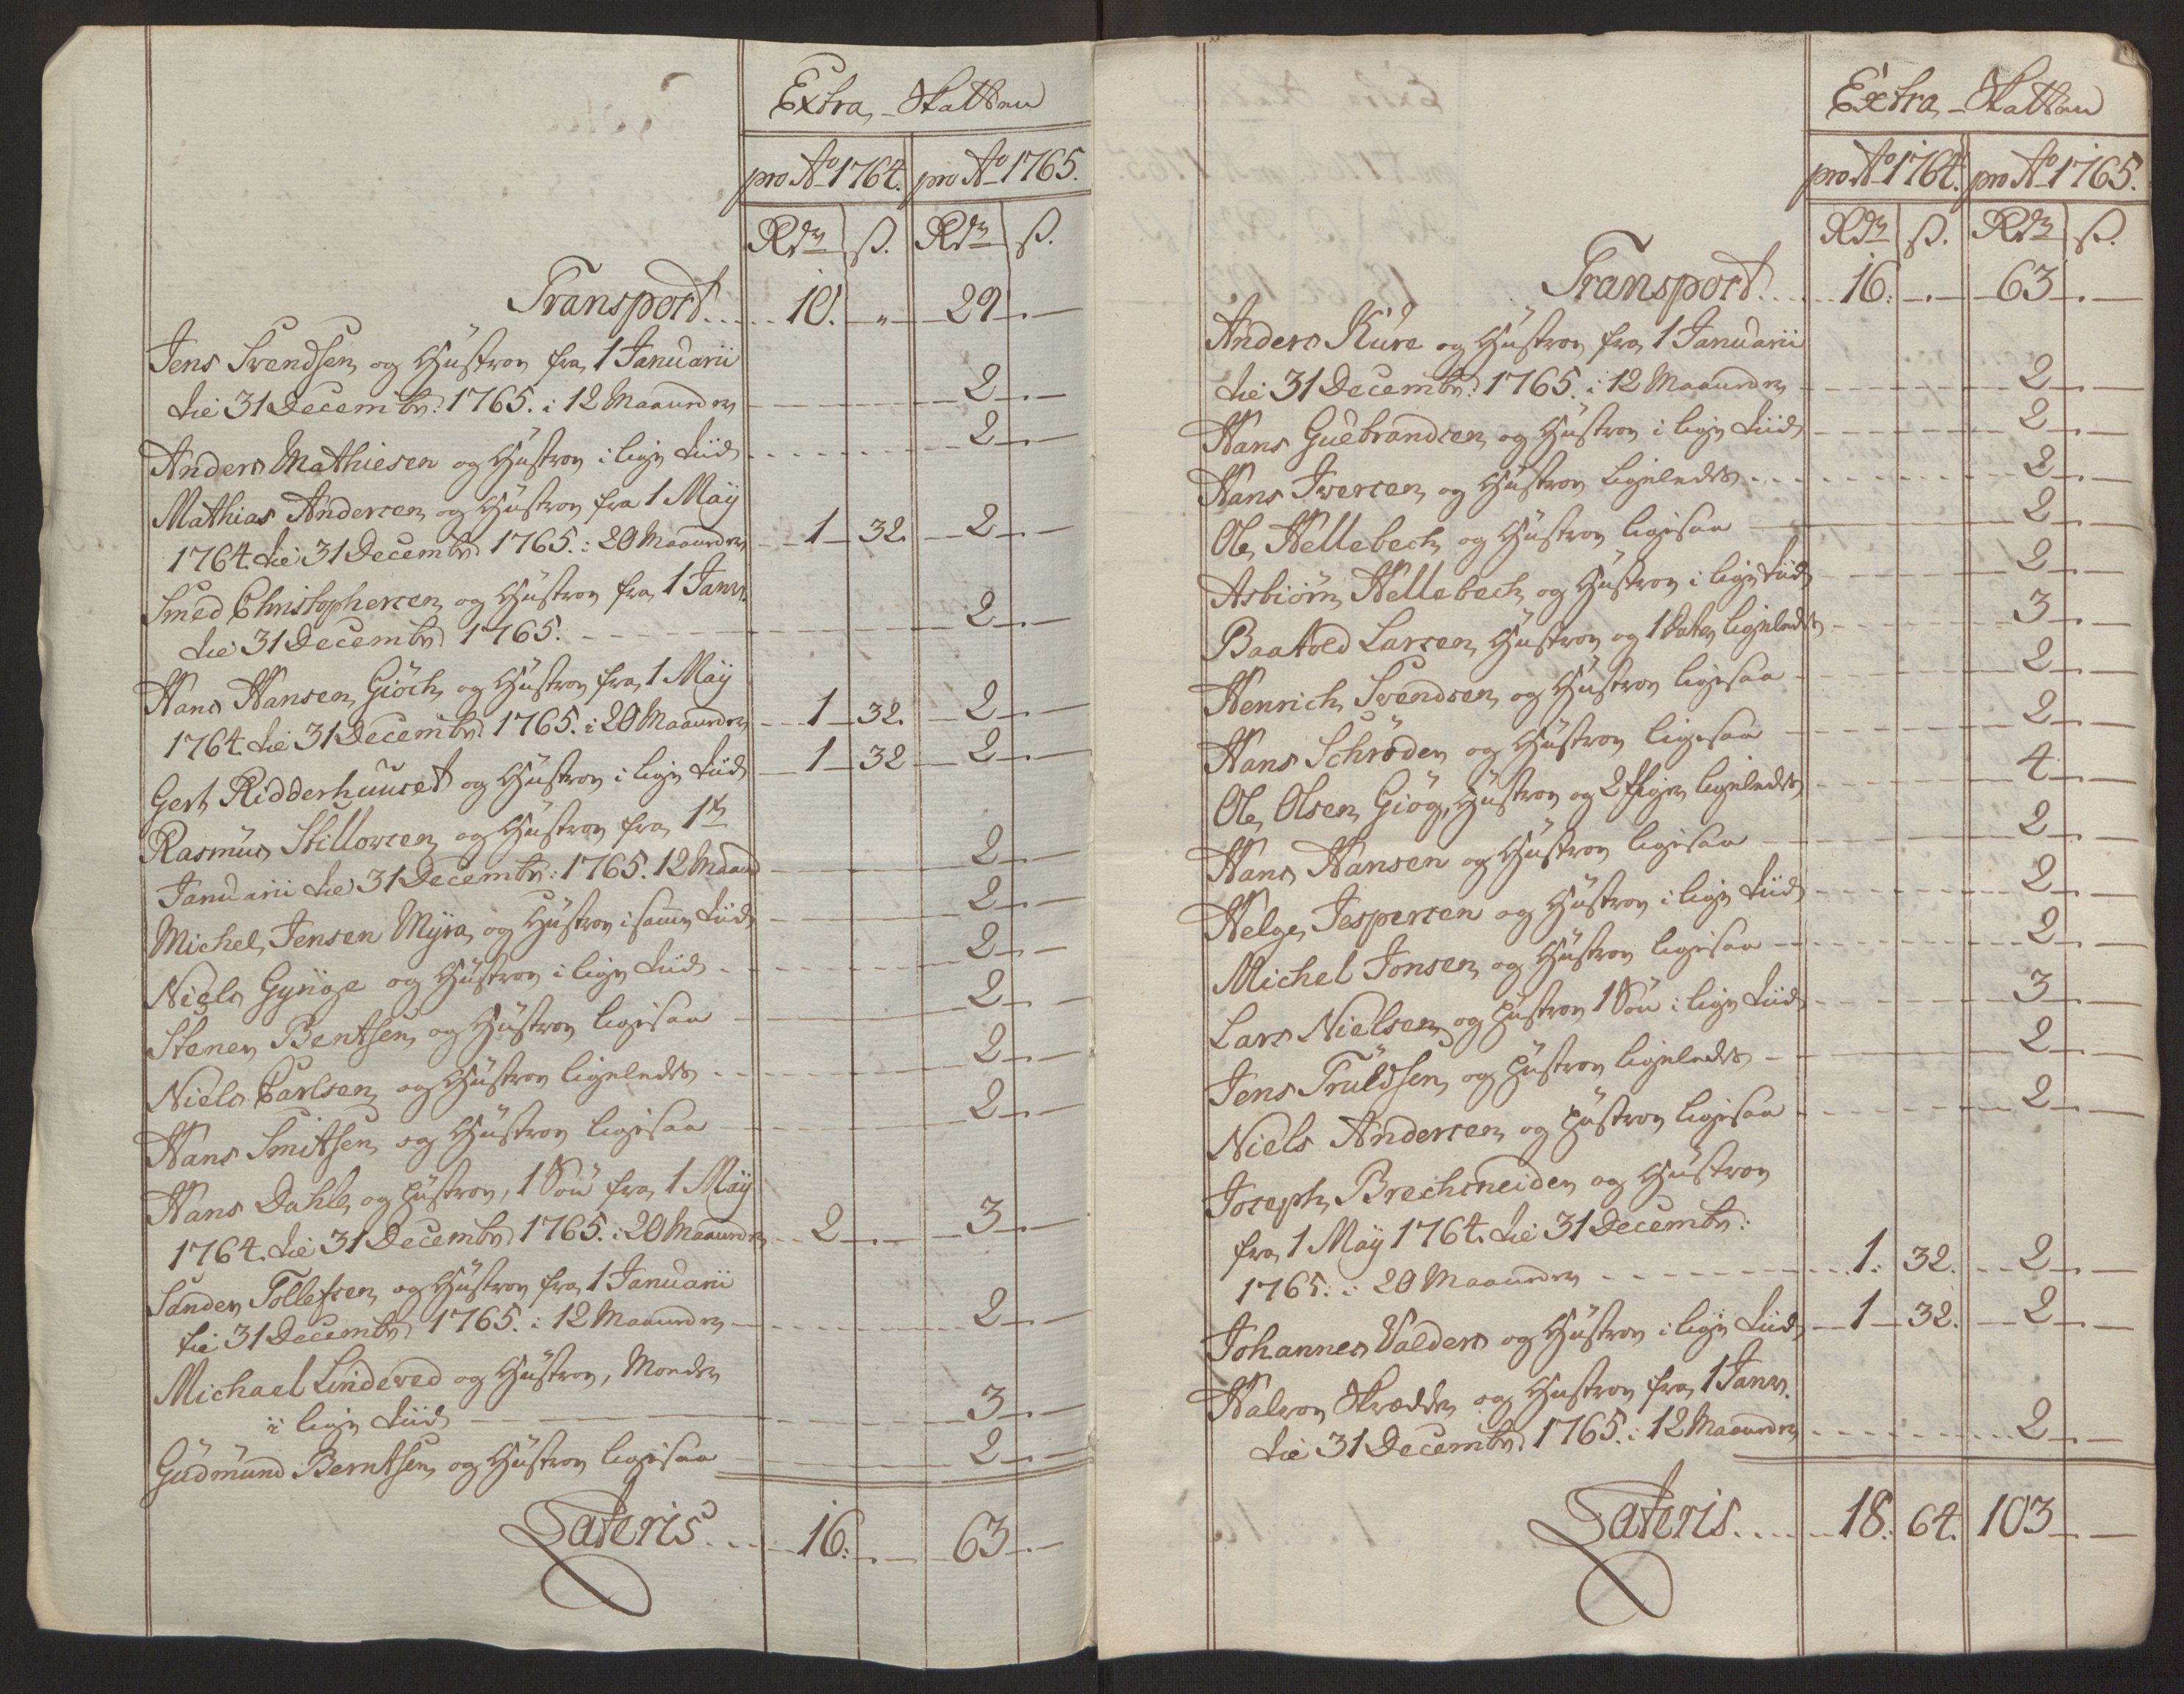 Extra Skatten
pro Ao 1764. pro Ao 1765.
Rdr ß. Rdr ß.
Transport.... 10. " 29 —
Jens Svendsen og Hustrou fra 1 Januarii
til 31 Decembr: 1765. i 12 Maaneder 2 —
Anders Mathiesen og Hustrou i lige Tiid 2 —
Mathias Andersen og Hustrou fra 1 Maÿ
1764. til 31 Decembr 1765. i 20 Maaneder 1 32. 2 —
Smed Christophersen og Hustrou fra 1 Janv.
til 31 Decembr 1765. 2 —
Hans Hansen Giöch og Hustrou fra 1 Maÿ
1764. til 31 Decembr 1765. i 20 Maaneder 1 32. 2 —
Gert Ridderhuuset og Hustrou i lige Tiid 1 32 2 —
Rasmus Stillowsen og Hustrou fra 1te
Januarii til 31 Decembr: 1765. 12 Maand 2 —
Michel Jensen Mÿra og Hustrou i samme Tiid 2 —
Niels og Hustrou i lige Tiid 2 —
Stener Bentsen og Hustrou ligesaa 2 —
Niels Carlsen og Hustrou ligeledes 2 —
Hans Smitsen og Hustrou ligesaa 2 —
Hans Dahle og Hustrou, 1 Sön fra 1 Maÿ
1764. til 31 Decembr 1765. i 20 Maaneder 2 — 3 —
Sander Tollefsen og Hustrou fra 1 Januarii
til 31 Decembr 1765. i 12 Maaneder 2 —
Michael Lindeved og Hustrou, Moder
i lige Tiid 3 —
Gudmund Berntsen og Hustrou ligesaa 2 —
Lateris.... 16. — 63 —
Extra Skatten
pro Ao 1764. pro Ao 1765.
Rdr ß. Rdr ß.
Transport.... 16. — 63 —
Anders Kure og Hustrou fra 1 Januarii
til 31 Decembr: 1765. i 12 Maaneder 2 —
Hans Guebrandsen og Hustrou i lige Tiid 2 —
Hans Iversen og Hustrou ligeledes 2 —
Ole Hellebech og Hustrou ligesaa 2 —
Asbiörn Hellebech og Hustrou i lige Tiid 2 —
Baatold Larsen Hustrou og 1 Dater ligeledes 3 —
Henrich Svendsen og Hustrou ligesaa 2 —
Hans Schröder og Hustrou ligesaa 2 —
Ole Olsen Giög, Hustrou og 2 Piger ligeledes 4 —
Hans Hansen og Hustrou ligesaa 2 —
Helge Jespersen og Hustrou i lige Tiid 2 —
Michel Jonsen og Hustrou ligesaa 2 —
Lars Nielsen og Hustrou 1 Sön i lige Tiid 3 —
Jens Truldsen og Hustrou ligeledes 2 —
Niels Andersen og Hustrou ligesaa 2 —
Joseph Brechsneider og Hustrou
fra 1 Maÿ 1764. til 31 Decembr:
1765: i 20 Maaneder 1. 32. 2 —
Johannes Valders og Hustrou i lige Tiid 1 32. 2 —
Halvor Skrædder og Hustrou fra 1 Janv.
til 31 Decembr 1765. i 12 Maaneder 2 —
Lateris.... 18. 64. 103 —